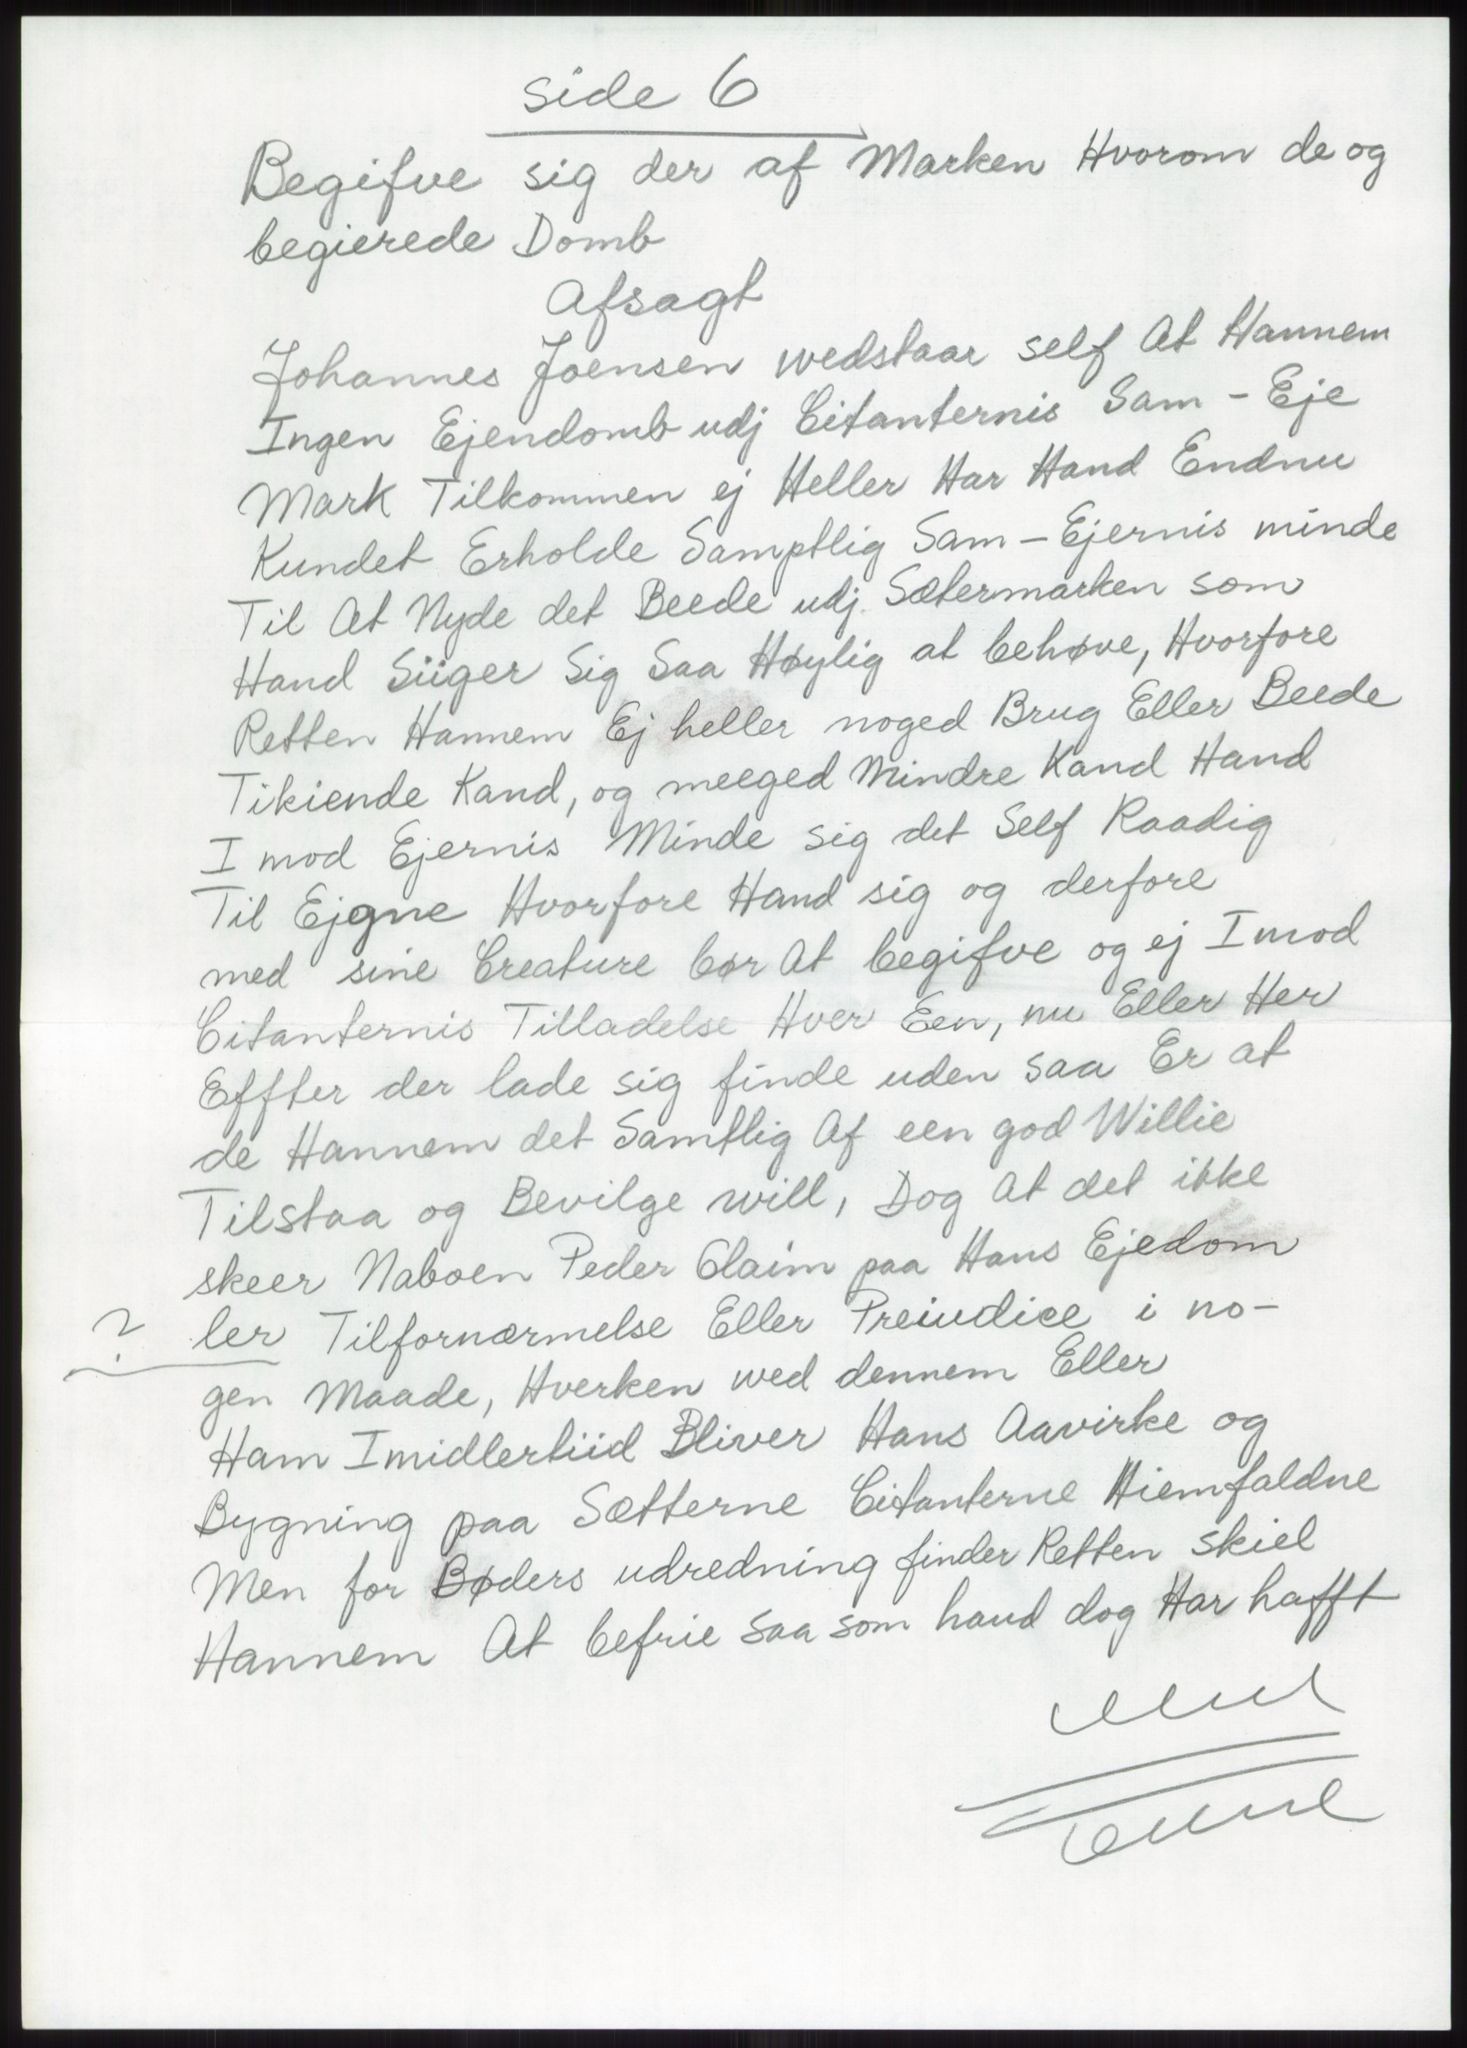 side 6
Begifve sig der af Marken Hvorom de og
begierede Domb
Afsagt
Johannes Joensen wedstaar self At Hannem
Ingen Ejendomb udj Citanternis Sam - Eje
Mark Tilkommen ej Heller Har Hand Endnu
Kundet Erholde Samptlig Sam - Ejernis minde
Til At Nyde det Beede udj. Sætermarken som
Hand Siiger Sig Saa Høylig at behøve, Hvorfore
Retten Hannem Ej heller noged Brug Eller Beede
Tikiende Kand, og meeged Mindre Kand Hand
I mod Ejernis Minde sig det Self Raadig
Til Ejgne Hvorfore Hand sig og derfore
med sine Creature bør At begifve og ej I mod
Citanternis Tilladelse Hver Een, nu Eller Her
Effter der lade sig finde uden saa Er at
de Hannem det Samtlig Af een god Willie
Tilstaa og Bevilge will, Dog At det ikke
skeer Naboen Peder Glaim paa Hans Ejedom
? ler Tilfornærmelse Eller Preiudice i no-
gen Maade, Hverken wed dennem Eller
Ham Imidlertiid Bliver Hans Aavirke og
Bygning paa Sætterne Citanterne Hiemfaldne
Men for Bøders udredning finder Retten skiel
Hannem At befrie saa som hand dog Har hafft